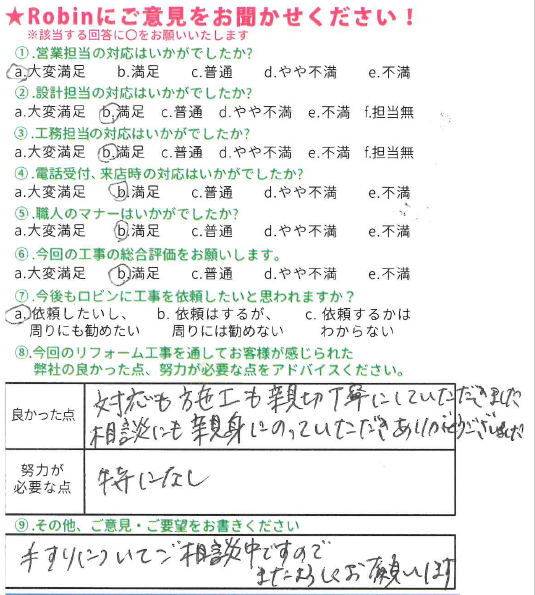 ★Robinにご意見をお聞かせください！
※該当する回答に〇をお願いいたします
①.営業担当の対応はいかがでしたか?
a.大変満足 b.満足 c.普通 d.やや不満 e.不満
②.設計担当の対応はいかがでしたか?
a.大変満足 b.満足 c.普通 d.やや不満 e.不満 f.担当無
③.工務担当の対応はいかがでしたか?
a.大変満足 b.満足 c.普通 d.やや不満 e.不満 f.担当無
④.電話受付、来店時の対応はいかがでしたか?
a.大変満足 b.満足 c.普通 d.やや不満 e.不満
⑤.職人のマナーはいかがでしたか?
a.大変満足 b.満足 c.普通 d.やや不満 e.不満
⑥.今回の工事の総合評価をお願いします。
a.大変満足 b.満足 c.普通 d.やや不満 e.不満
⑦.今後もロビンに工事を依頼したいと思われますか？
a.依頼したいし、 b. 依頼はするが、 c. 依頼するかは
周りにも勧めたい 周りには勧めない わからない
⑧.今回のリフォーム工事を通してお客様が感じられた
弊社の良かった点、努力が必要な点をアドバイスください。
良かった点
対応も施工も親切丁寧にしていただきました
相談にも親身にのっていただきありがとうございました
努力が
必要な点
特になし
⑨.その他、ご意見・ご要望をお書きください
手すりについてご相談中ですので
またよろしくお願いします